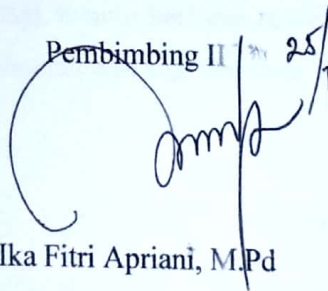 Pembimbing II 25/
Ika Fitri Apriani, M.Pd